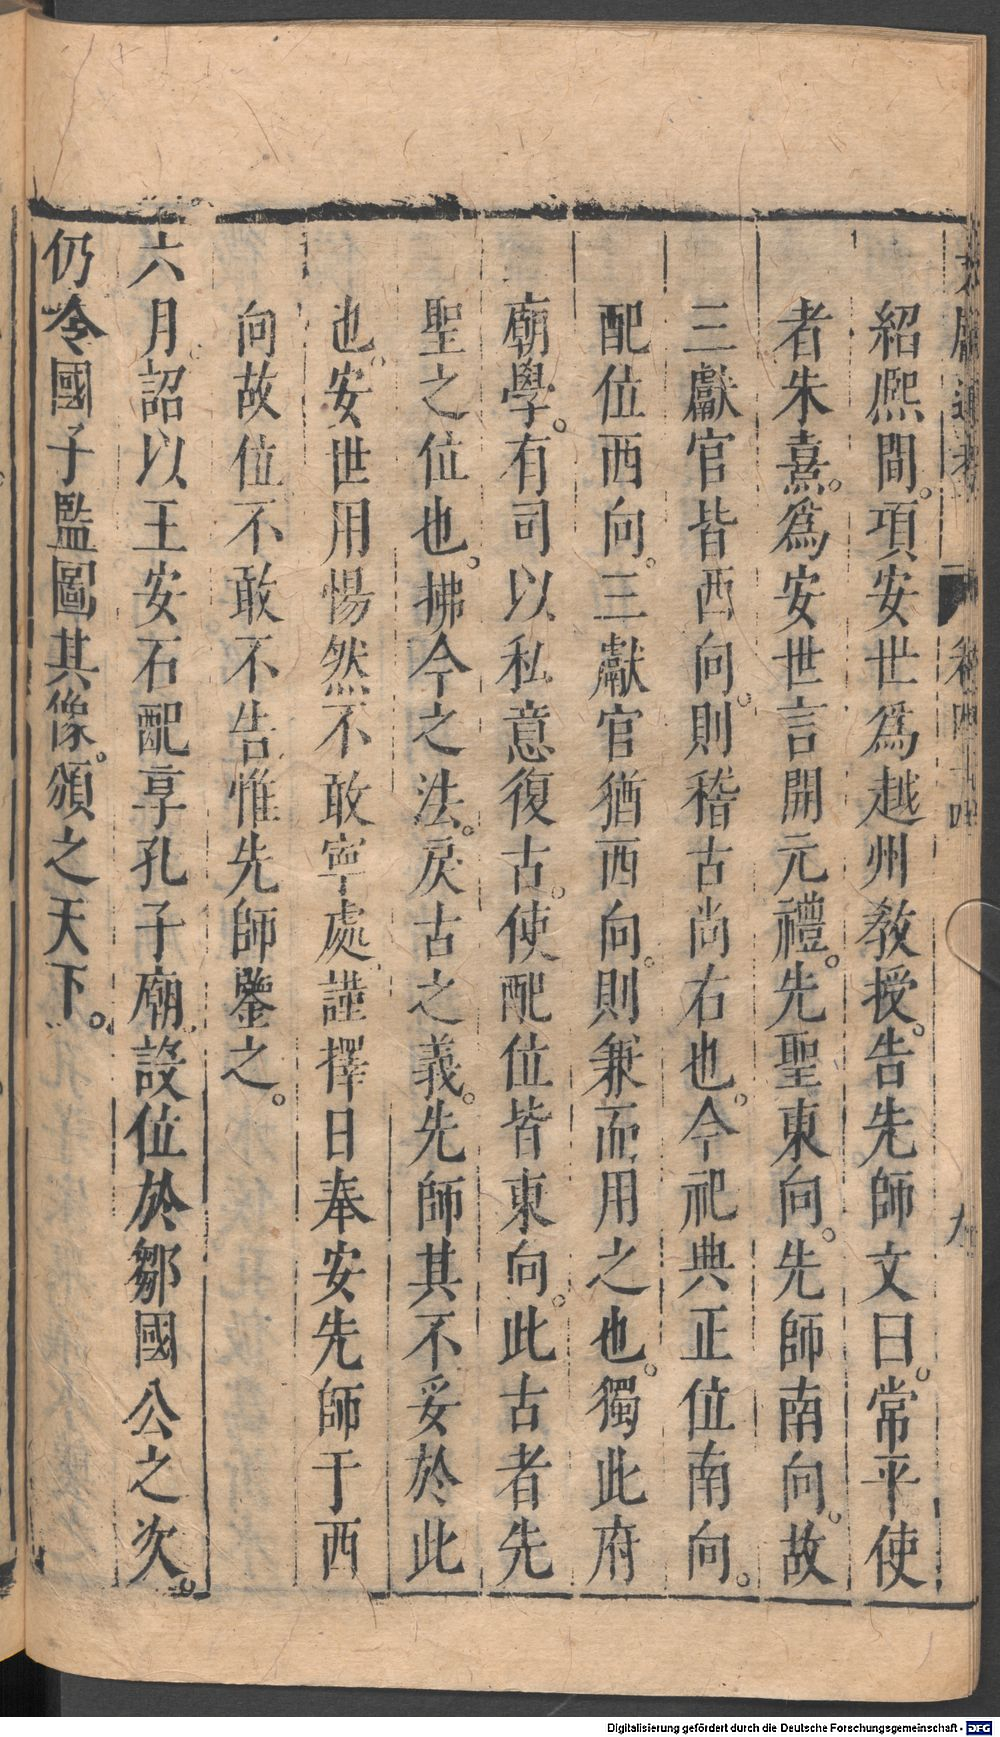 紹熈間。項安世爲越州敎授。告先師文曰。常平使
者朱熹。爲安世言開元禮。先聖東向。先師南向。故
三獻官皆西向。則稽古尚右也。今祀典正位南向。
配位西向。三獻官猶西向。則兼而用之也。獨此府
廟學。有司以私意復古。使配位皆東向。此古者先
聖之位也。拂今之法。戾古之義。先師其不妥於此
也。安世用惕然不敢寧處。謹擇日奉安先師于西
向故位。不敢不告。惟先師鑒之。
六月。詔以王安石配享孔子廟。設位於鄒國公之次。
仍令國子監圖其像。頒之天下。
Digitalisierung gefördert durch die Deutsche Forschungsgemeinschaft - DFG